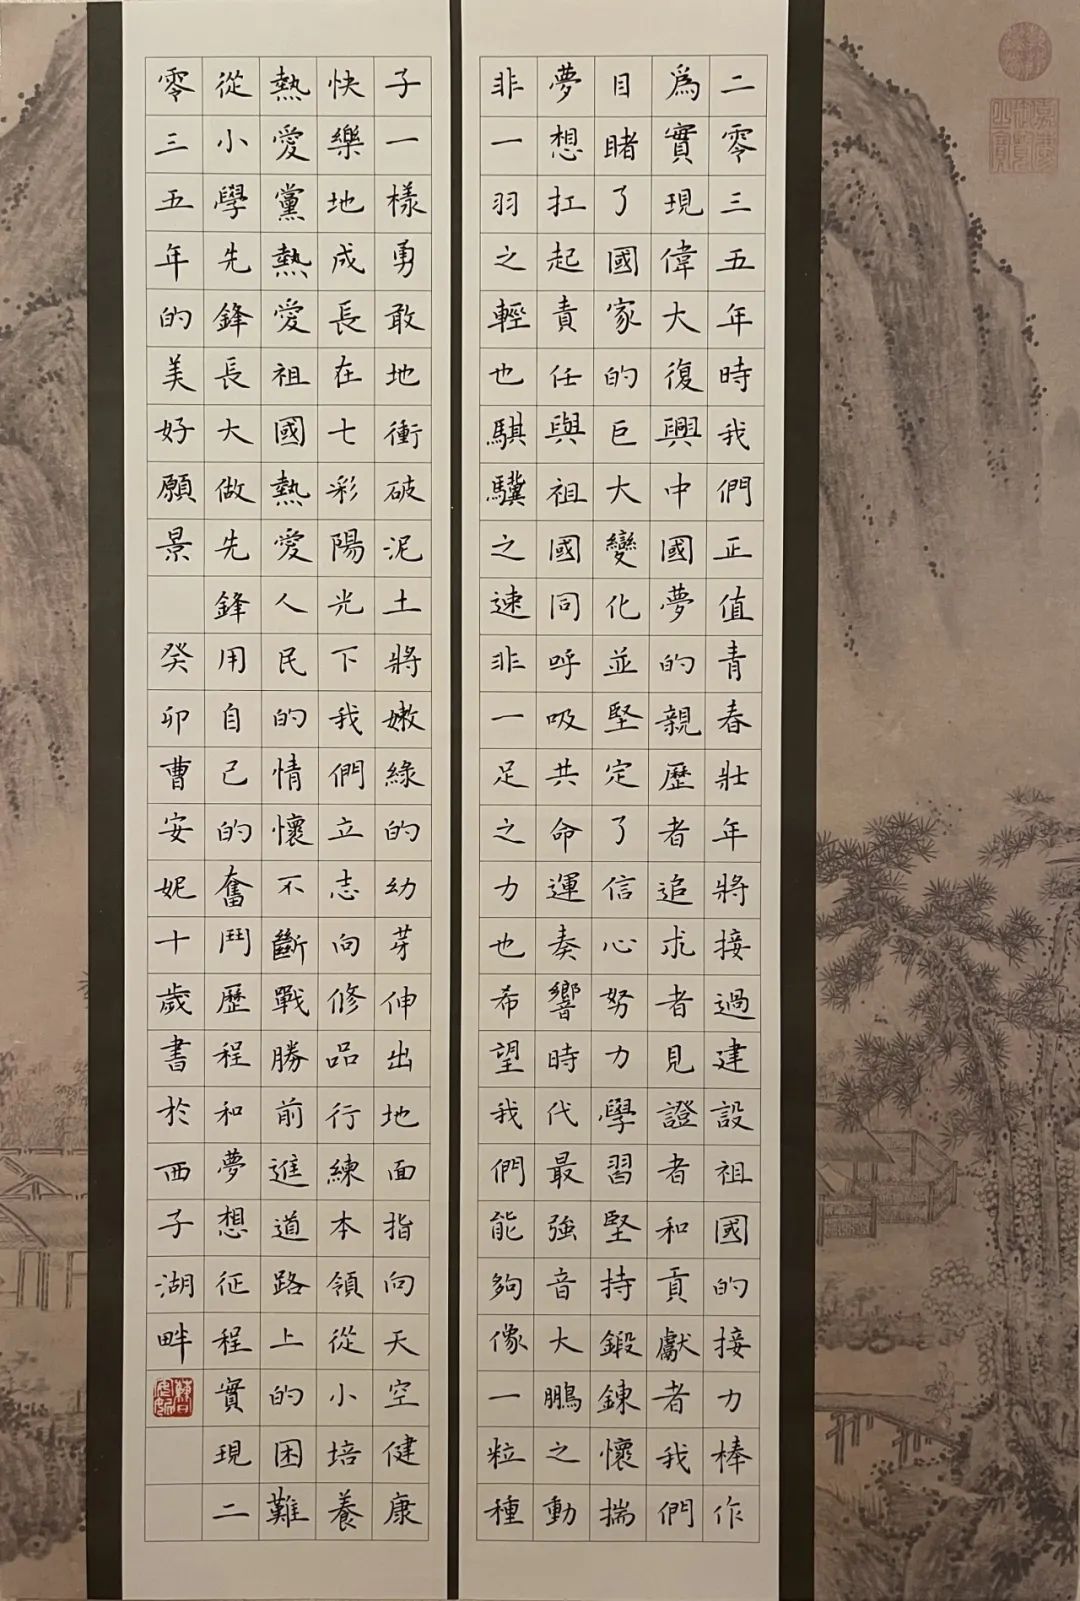 二零三五年時我們正值青春壯年將接過建設祖國的接力棒作
爲實現偉大復興中國夢的親歷者追求者見證者和貢獻者我們
目睹了國家的巨大變化並堅定了信心努力學習堅持鍛鍊懷揣
夢想扛起責任與祖國同呼吸共命運奏響時代最強音大鵬之動
非一羽之輕也騏驥之速非一足之力也希望我們能夠像一粒種
子一樣勇敢地衝破泥土將嫩綠的幼芽伸出地面指向天空健康
快樂地成長在七彩陽光下我們立志向修品行練本領從小培養
熱愛黨熱愛祖國熱愛人民的情懷不斷戰勝前進道路上的困難
從小學先鋒長大做先鋒用自己的奮鬥歷程和夢想征程實現二
零三五年的美好願景 癸卯曹安妮十歲書於西子湖畔